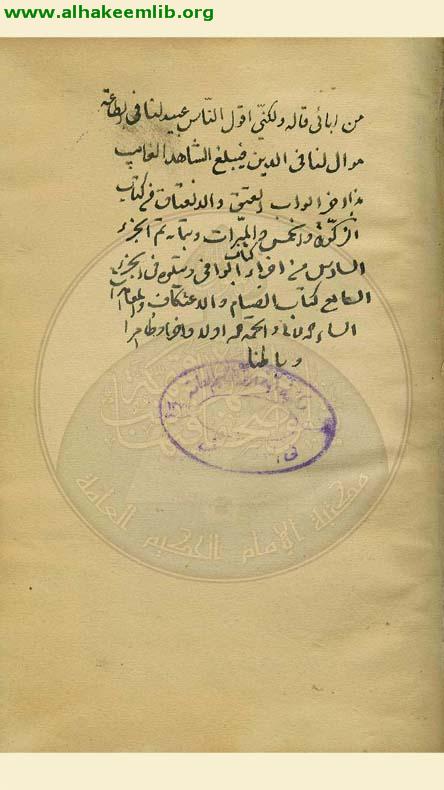 www.alhakeemlib.org
من ابائى قاله ولكنّى اقول النّاس عبيد لنا فى الطاعة
موال لنا فى الدين فيبلغ الشاهد الغايب
هذا اخر ابواب العتق والانعتاق من كتاب
الزكوة والخمس والمبرّات وبتمامه تم الجزء
السادس من اجزاء كتاب الوافى ويتلوه فى الجزء
السابع كتاب الصيام والاعتكاف
والحمد لله اولا واخرا وظاهرا
وباطنا
مكتبة الإمام الحكيم العامة